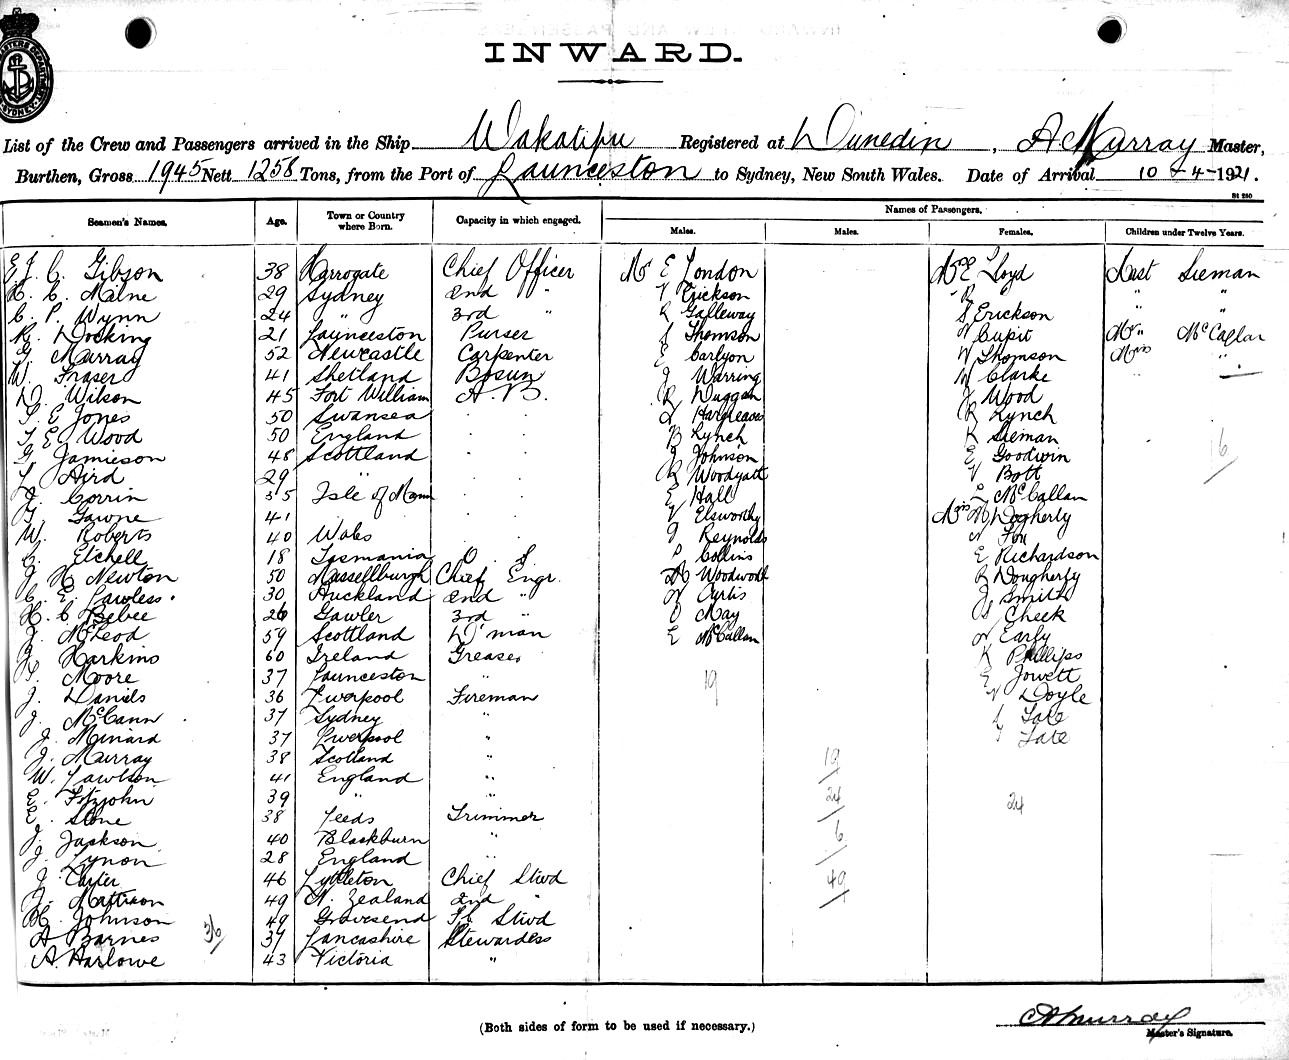 INWARD.
List of the Crew and Passengers arrived in the Ship Wakatipu Registered at Dunedin, A Murray Master,
Burthen, Gross 1945 Nett 1258 Tons, from the Port of Launceston to Sydney, New South Wales. Date of Arrival 10-4-1921.
Seamen's Names. Age. Town or Country where Born. Capacity in which engaged. Names of Passengers.
Males. Males. Females. Children under Twelve Years.
E. J. C. Gibson 38 Harrogate Chief Officer Mr E London Mrs E Lloyd Mast Sieman
H. C. Maine 29 Sydney 2nd " V Erickson " R " " "
C. P. Wynn 24 " " 3rd " R Galleway S Erickson " "
R. Docking 21 Launceston Purser S Thomson N Cupit " McCallan
G. Murray 52 Newcastle Carpenter E Carlyon W Thomson Miss "
W. Fraser 41 Shetland Bosun J Warring M Clarke
D. Wilson 45 Fort William A.B. R Duggan J Wood
T. E Jones 50 Swansea " Hargreaves R Lynch
T. E. Wood 50 England " B Lynch K Sieman
G. Jamieson 48 Scottland " J Johnson E Goodwin
L. Aird 29 " " R Woodyatt V Bott
J. Corrin 35 Isle of Mann " E Hall L McCallan
G. Gawne 41 " V Elsworthy Miss M Dogherly
W. Roberts 40 Wales " J Reynolds N Fox
C. Etchell 18 Tasmania O. S P Collins E Richardson
J. H. Newton 50 Mussellburgh Chief Engr. Woodworth R Dougherty
C. E. Lawless. 30 Auckland 2nd " N Curtis J Smith
H. C. Bebee 26 Gawler 3rd " O May S Cheek
J. McLeod 59 Scottland D'man E McCallan N Early
J. Harkins 60 Ireland Greaser K Phillips
F. Moore 37 Launceston " 19 E Jowett
J. Daniels 36 Liverpool Fireman V Doyle
J. McCann 37 Sydney " S Tate
J. Minard 37 Liverpool " Y Tate
J. Murray 38 Scotland " 19
W. Lawtson 41 England "
E. Fitzjohn 39 " " 24 24
E. Stone 38 Leeds Trimmer
J. Jackson 40 Blackburn " 6
J. Lynon 28 England "
J. Carter 46 Lyttleton Chief Stwd 49
J. Mattison 49 N. Zealand 2nd "
H. Johnson 49 Gravesend F.C. Stwd
A Barnes 36 37 Lancashire Stewardess
A. Harlowe 43 Victoria "
16
(Both sides of form to be used if necessary.)
A Murray
Master's Signature.